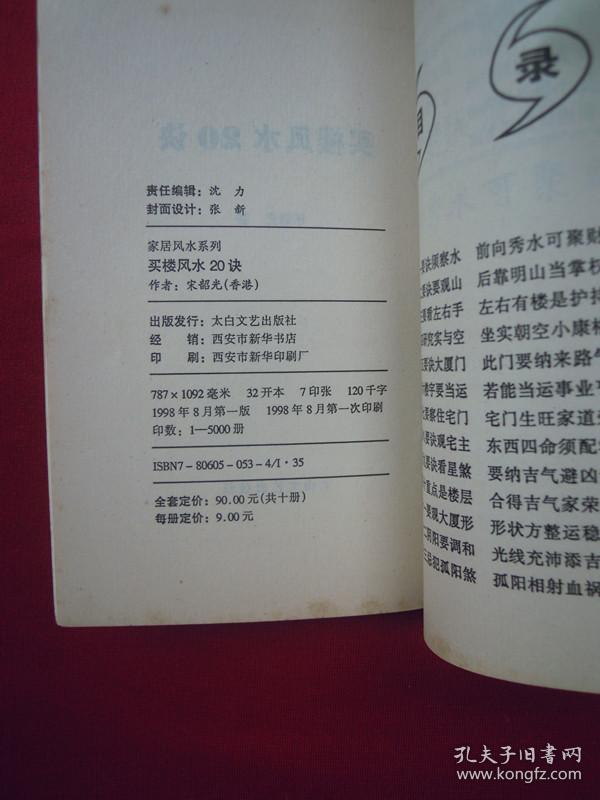 责任编辑：沈 力
封面设计：张 新
家居风水系列
买楼风水20诀
作者：宋韶光(香港)
出版发行：太白文艺出版社
经 销：西安市新华书店
印 刷：西安市新华印刷厂
787×1092毫米 32开本 7印张 120千字
1998年8月第一版 1998年8月第一次印刷
印数：1—5000册
ISBN7-80605-053-4/I·35
全套定价：90.00元(共十册)
每册定价：9.00元
录
要诀须察水 前向秀水可聚财
要诀要观山 后靠明山当掌权
要看左右手 左右有楼是护
研究实与空 坐实朝空小康
要诀大厦门 此门要纳来路气
楼宇要当运 若能当运事业
要察住宅门 宅门生旺家道
要诀观宅主 东西四命须配
要诀看星煞 要纳吉气避凶
重点是楼层 合得吉气家荣
要观大厦形 形状方整运稳
阴阳要调和 光线充沛添吉
忌犯孤阳煞 孤阳相射血祸
孔夫子旧书网
www.kongfz.com